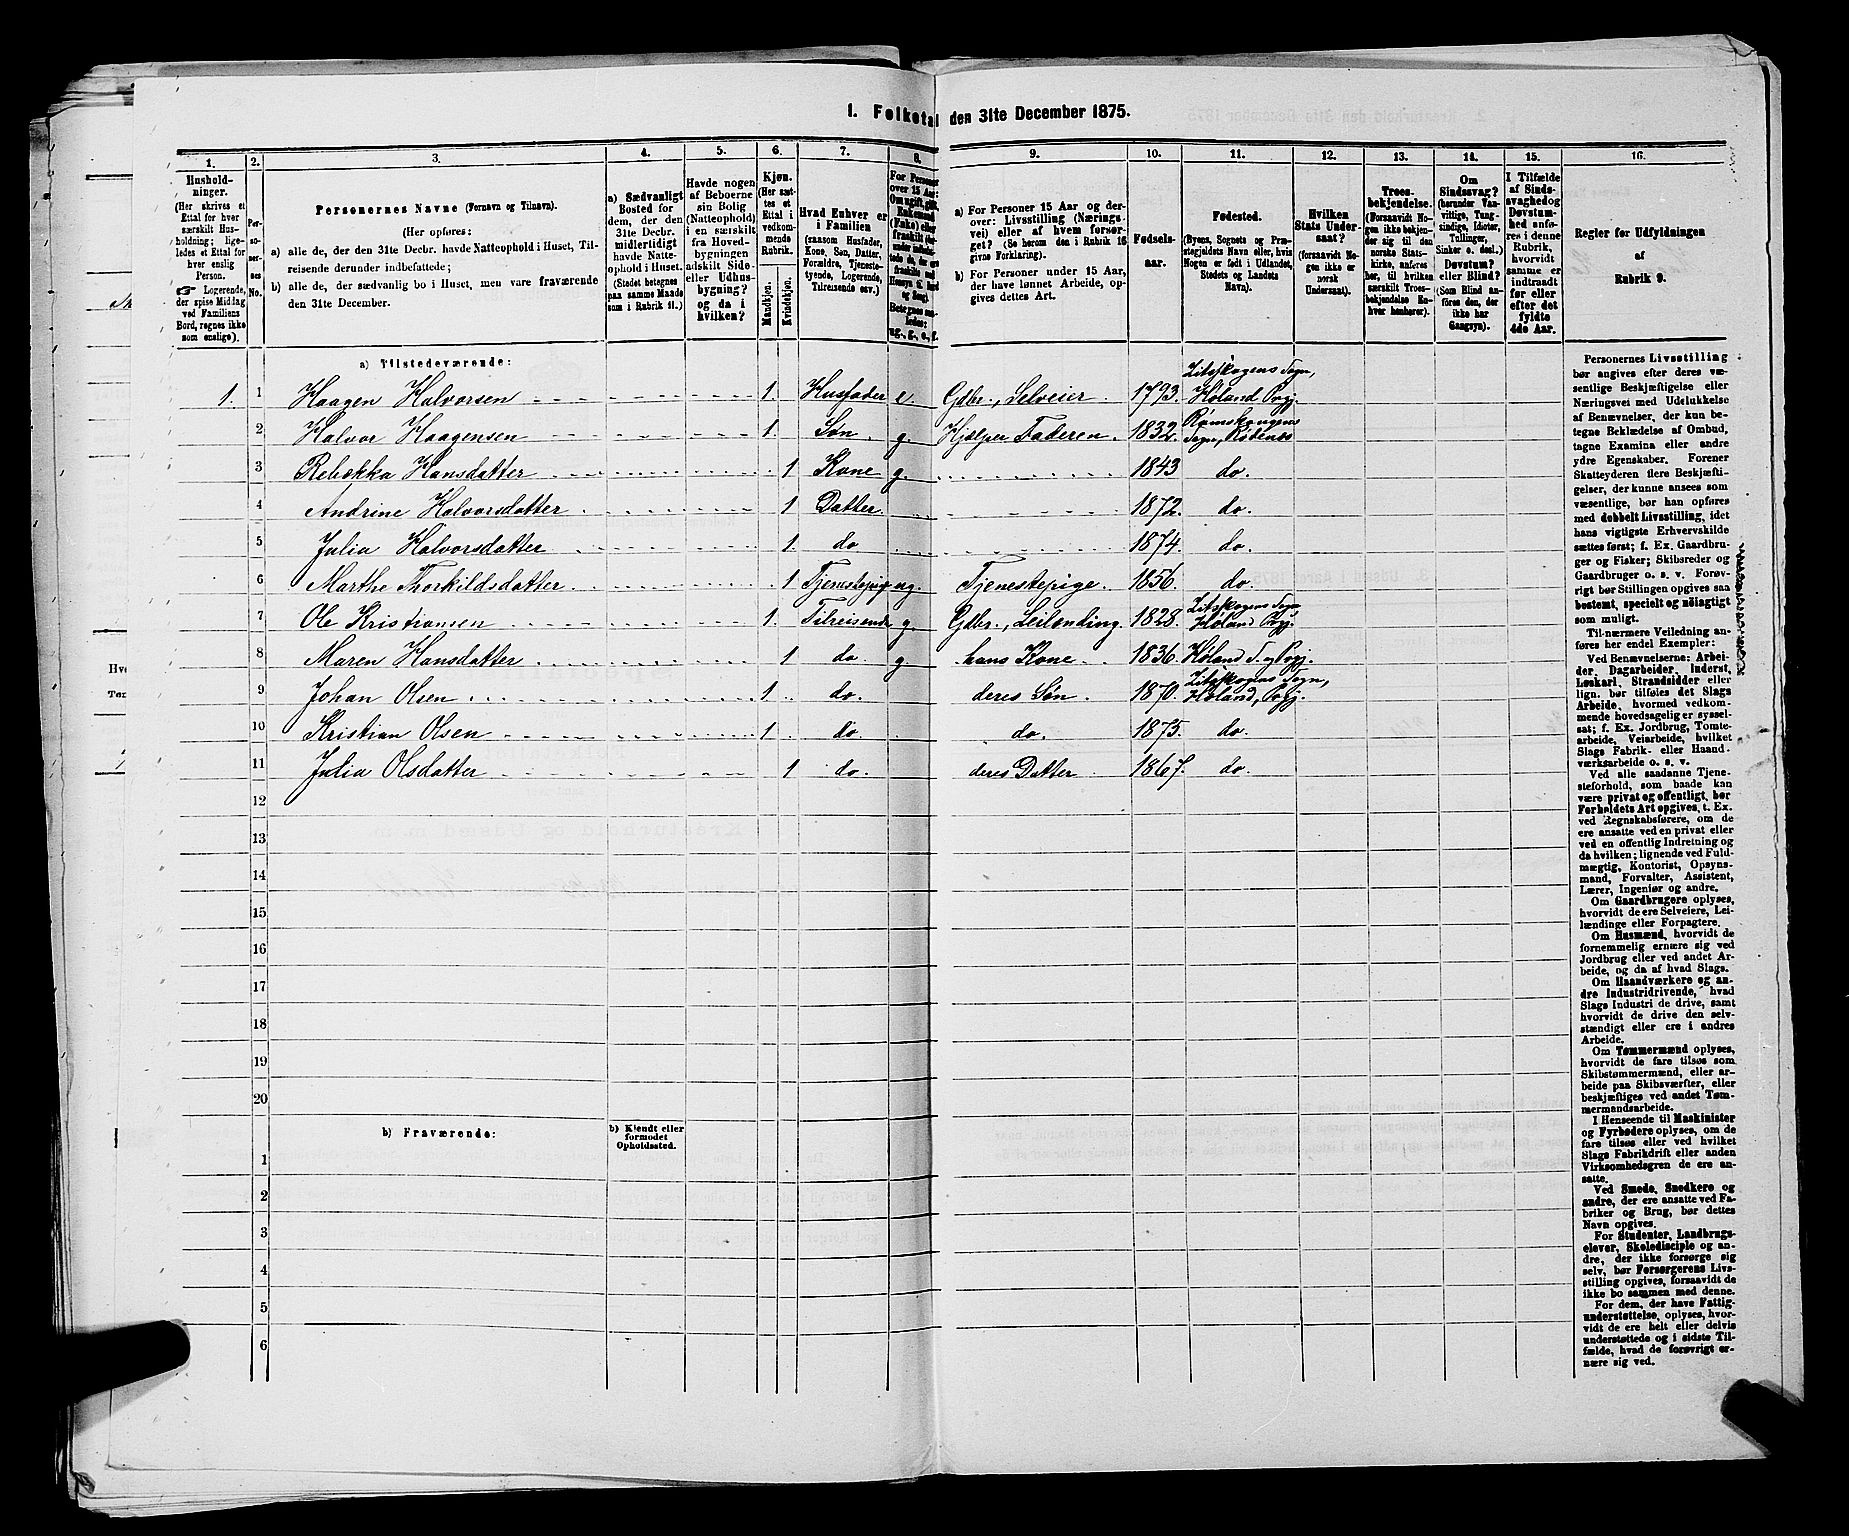 1. Folketal den 31te December 1875.
1. 2. 3. 4. 5. 6. 7. 8. 9. 10. 11. 12. 13. 14. 15. 16.
Husholdninger.
(Her skrives et
Ettal for hver
særskilt Husholdning; ligeledes et Ettal
for hver
enslig
Person.
Logerende,
der spise Middag
ved Familiens
Bord, regnes ikke
som enslige).
Personernes No.
Personernes Navne (Fornavn og Tilnavn).
(Her opføres:
a) alle de, der den 31te Decbr. havde Natteophold i Huset, Tilreisende derunder indbefattede;
b) alle de, der sædvanlig bo i Huset, men vare fraværende
den 31te December.
a) Sædvanligt
Bosted for
dem, der den
31te Decbr.
midlertidigt
havde Natteophold i Huset.
(Stedet betegnes
paa samme Maade
som i Rubrik 11.)
Havde nogen
af Beboerne
sin Bolig
(Natteophold)
i en særskilt
fra Hovedbygningen
adskilt Side- eller Udhusbygning?
og da i
hvilken?
Kjøn.
(Her sættes et
Ettal i
vedkommende
Rubrik.
Mandkjøn.
Kvindekjøn.
Hvad Enhver er
i Familien
(saasom Husfader,
Kone, Søn, Datter,
Forældre, Tjenestetyende, Logerende,
Tilreisende osv.)
a) For Personer 15 Aar og derover: Livsstilling (Næringsvei) eller af hvem forsørget? (Se herom den i Rubrik 16
givne Forklaring).
b) For Personer under 15 Aar,
der have lønnet Arbeide, opgives dettes Art.
Fødselsaar.
Fødested.
(Byens, Sognets og Præstegjeldets Navn eller, hvis
Nogen er født i Udlandet,
Stedets og Landets
Navn).
Hvilken
Stats Undersaat?
(forsaavidt Nogen ikke er
norsk
Undersaat).
Troesbekjendelse.
(Forsaavidt Nogen ikke bekjender sig til den
norske Statskirke, anføres
her, til hvilken
særskilt Troesbekjendelse Enhver henhører).
Om
Sindssvag?
(herunder Vanvittige, Tungsindige, Idioter,
Tullinger,
Sinker o. desl.)
Døvstum?
eller Blind?
(Som Blind anføres den, der
ikke har
Gangsyn).
I Tilfælde
af Sindssvaghed og
Døvstumhed anføres i denne
Rubrik,
hvorvidt
samme er
indtraadt
før eller
efter det
fyldte
4de Aar.
Regler for Udfyldningen
af
Rubrik 9.
a) Tilstedeværende:
1. 1 Haagen Halvorsen 1. Husfader e. Gdbr., Selveier 1793. Zitskogens Sogn, Høland Prgj.
2 Halvor Haagensen 1. Søn. g. Hjælper Faderen. 1832. Rømskougens Sogn, Rødenæs
3 Rebækka Hansdatter 1 Kone g. 1843 do.
4 Andrine Halvorsdatter 1 Datter. 1872. do.
5 Julia Halvorsdatter 1. do 1874. do.
6 Marthe Thorkildsdatter 1 Tjenestepige ug. Tjenestepige. 1856. do.
7 Ole Kristiansen 1. Tilreisende g. Gdbr., Leilænding. 1828. Zitskogens Sogn Høland Prgj.
8 Maren Hansdatter 1 do g hans Kone 1836. Høland S. og Prgj.
9 Johan Olsen 1 do. deres Søn 1870. Zitskogens Sogn, Høland, Prgj.
10 Kristian Olsen 1 do. do. 1875. do.
11 Julia Olsdatter 1 do. deres Datter 1867. do.
12
13
14
15
16
17
18
19
20
b) Fraværende:
b) Kjendt eller
formodet
Opholdssted.
1
2
3
4
5
6
Personernes Livsstilling
bør angives efter deres væsentlige Beskjæftigelse eller
Næringsvei med Udelukkelse
af Benævnelser, der kun betegne Beklædelse af Ombud,
tagne Examina eller andre
ydre Egenskaber. Forener
Skatteyderen flere Beskjæftigelser, der kunne ansees som
væsentlige, bør han opføres
med dobbelt Livsstilling, idet
hans vigtigste Erhvervskilde
sættes først; f. Ex. Gaardbruger og Fisker; Skibsreder og
Gaardbruger o. s. v. Forøvrigt bør Stillingen opgives saa
bestemt, specielt og nøiagtigt
som muligt.
Til nærmere Veiledning anføres her endel Exempler:
Ved Benævnelserne: Arbeider, Dagarbeider, Inderst,
Løskarl, Strandsidder eller
lign. bør tilføies det Slags
Arbeide, hvormed vedkommende hovedsagelig er sysselsat; f. Ex. Jordbrug, Tomtearbeide, Veiarbeide, hvilket
Slags Fabrik- eller Haandværksarbeide o. s. v.
Ved alle saadanne Tjenesteforhold, som baade kan
være privat og offentligt, bør
Forholdets Art opgives, t. Ex.
ved Regnskabsførere, om de
ere ansatte ved en privat eller
ved en offentlig Indretning og
da hvilken; lignende ved Fuldmægtig, Kontorist, Opsynsmand, Forvalter, Assistent,
Lærer, Ingeniør og andre.
Om Gaardbrugere oplyses,
hvorvidt de ere Selveiere, Leilændinge eller Forpagtere.
Om Husmænd, hvorvidt de
fornemmelig ernære sig ved
Jordbrug eller ved andet Arbeide, og da af hvad Slags.
Om Haandværkere og andre Industridrivende, hvad
Slags Industri de drive, samt
hvorvidt de drive den selvstændigt eller ere i andres
Arbeide.
Om Tømmermænd oplyses,
hvorvidt de fare tilsøs som
Skibstømmermænd, eller arbeide paa Skibsværfter, eller
beskjæftiges ved andet Tømmermandsarbeide.
I Henseende til Maskinister
og Fyrbødere oplyses, om de
fare tilsøs eller ved hvilket
Slags Fabrikdrift eller anden
Virksomhedsgren de ere ansatte.
Ved Smede, Snedkere og
andre, der ere ansatte ved Fabriker og Brug, bør dettes
Navn opgives.
For Studenter, Landbrugselever, Skoledisciple og andre, der ikke forsørge sig
selv, bør Forsørgerens Livsstilling opgives, forsaavidt de
ikke bo sammen med denne.
For dem, der have Fattigunderstøttelse, oplyses, hvorvidt de ere helt eller delvis
understøttede og i sidste Tilfælde, hvad de forøvrigt ernære sig ved.